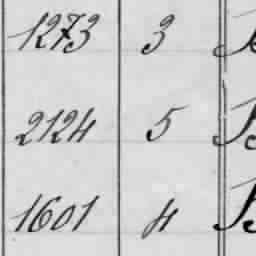 1273 3
2124 5
1601 4